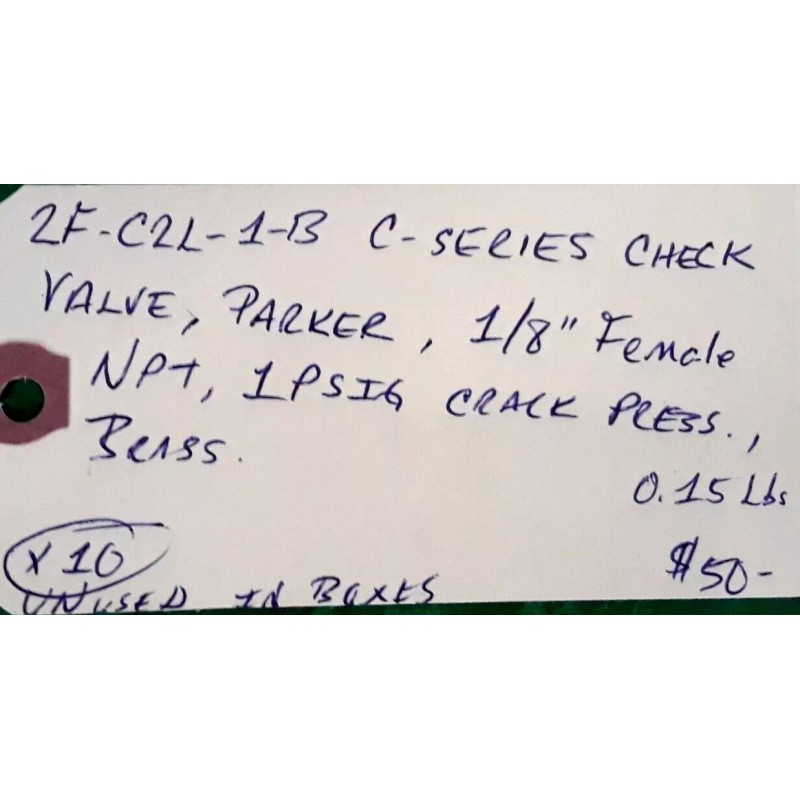 2F-C2L-1-B C-SERIES CHECK
VALVE, PARKER, 1/8" Female
NPT, 1PSIG CRACK PRESS.,
BRASS.
0.15 Lbs
X 10
$50-
UNUSED IN BOXES